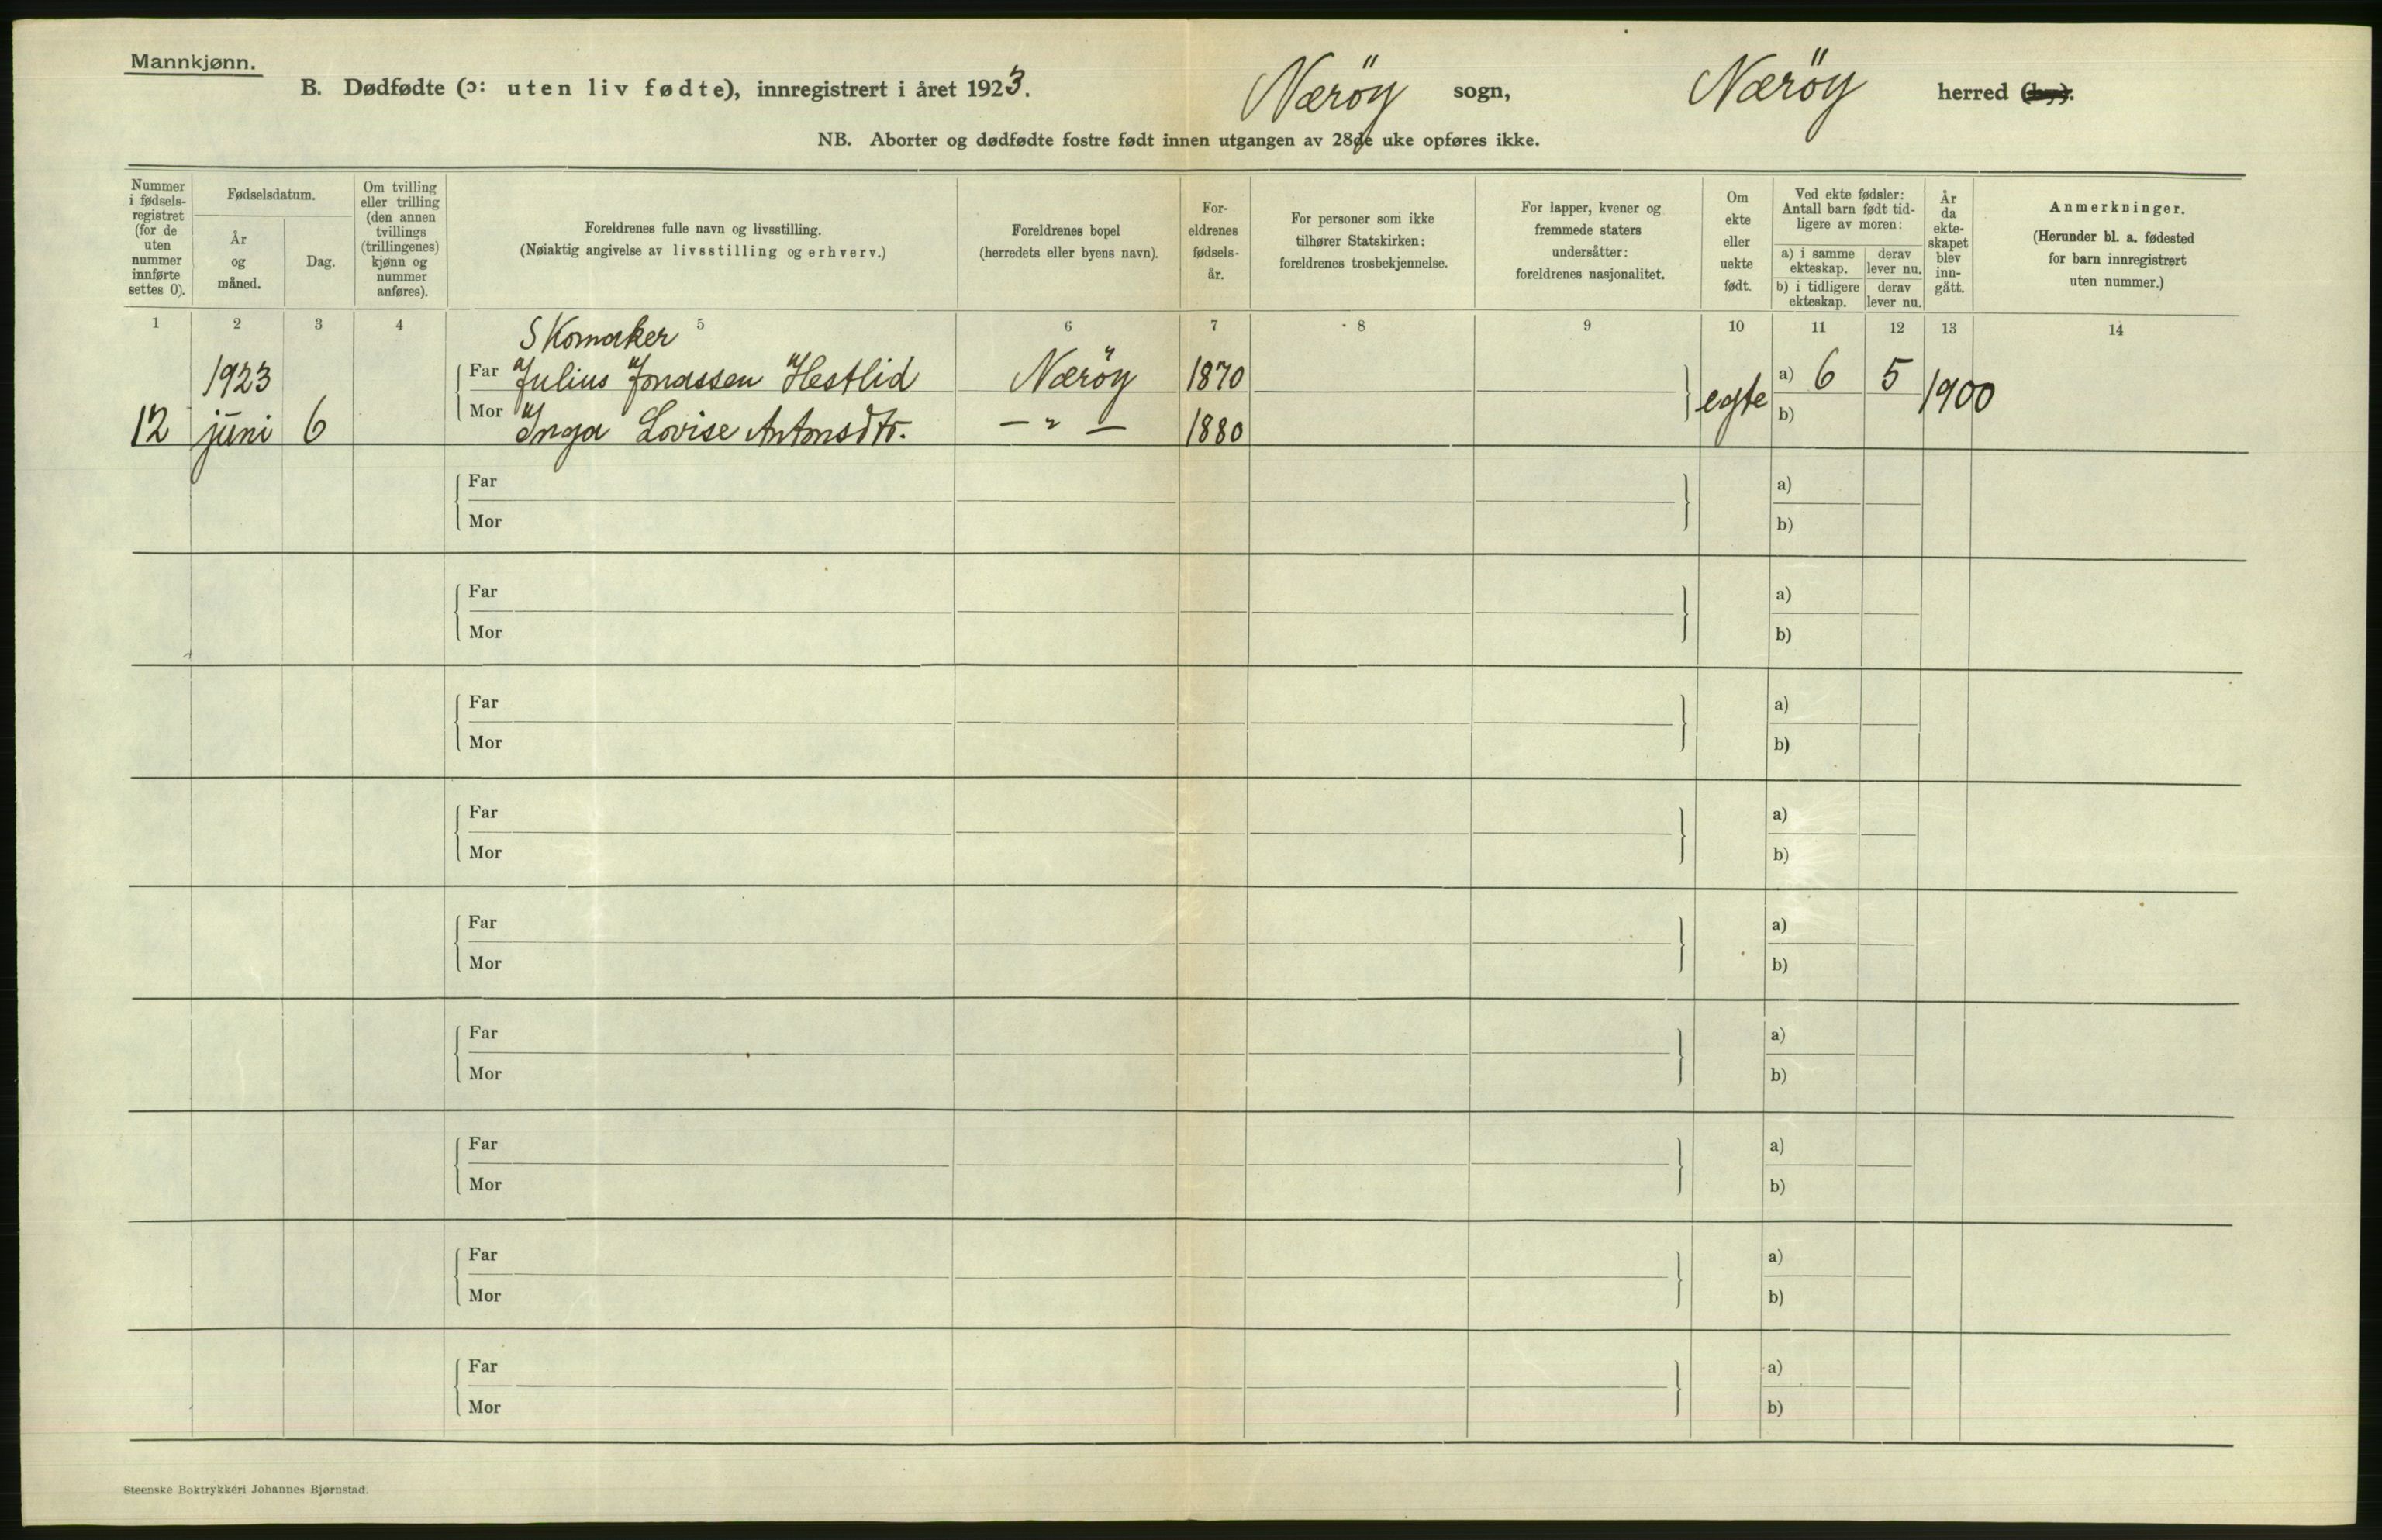 Mannkjønn.
B. Dødfødte (ɔ: uten liv fødte), innregistrert i året 1923. Næröy sogn, Næröy herred (by).
NB. Aborter og dødfødte fostre født innen utgangen av 28de uke opføres ikke.
Nummer i fødsels-registret (for de uten nummer innførte settes 0).
Fødselsdatum.
År og måned.
Dag.
Om tvilling eller trilling (den annen tvillings (trillingenes) kjønn og nummer anføres).
Foreldrenes fulle navn og livsstilling.
(Nøiaktig angivelse av livsstilling og erhverv.)
Foreldrenes bopel
(herredets eller byens navn).
For-eldrenes fødsels-år.
For personer som ikke tilhører Statskirken: foreldrenes trosbekjennelse.
For lapper, kvener og fremmede staters undersåtter: foreldrenes nasjonalitet.
Om ekte eller uekte født.
Ved ekte fødsler: Antall barn født tid-ligere av moren:
a) i samme ekteskap.
derav lever nu.
b) i tidligere ekteskap.
derav lever nu.
År da ekte-skapet blev inn-gått.
Anmerkninger.
(Herunder bl. a. fødested for barn innregistrert uten nummer.)
1 2 3 4 5 6 7 8 9 10 11 12 13 14
Skomaker
1923 Far Julius Jonassen Hestlid Næröy 1870 a) 6 5
12 juni 6 Mor Inga Lovise Antonsdtr. — " — 1880 egte b) 1900
Far a)
Mor b)
Far a)
Mor b)
Far a)
Mor b)
Far a)
Mor b)
Far a)
Mor b)
Far a)
Mor b)
Far a)
Mor b)
Far a)
Mor b)
Far a)
Mor b)
Steenske Boktrykkeri Johannes Bjørnstad.